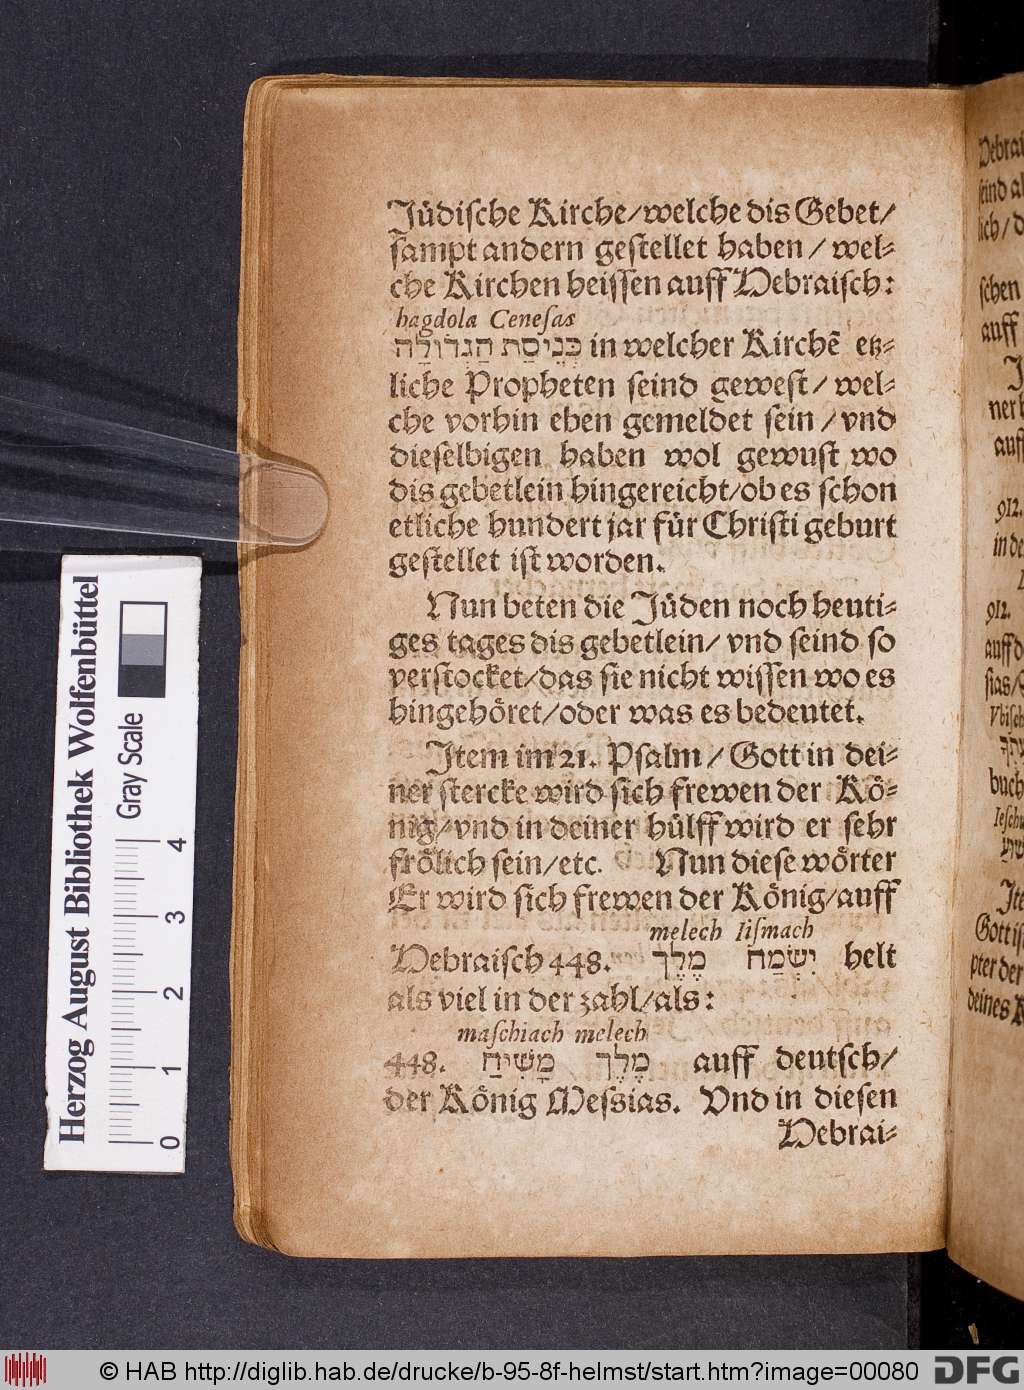 Jüdische Kirche/welche dis Gebet/
sampt andern gestellet haben/ wel-
che Kirchen heissen auff Hebraisch:
hagdola Cenesas
כְּנֵיסַת הַגְּדוֹלָה in welcher Kirchē etz-
liche Propheten seind gewest/ wel-
che vorhin eben gemeldet sein/vnd
dieselbigen haben wol gewust wo
dis gebetlein hingereicht/ob es schon
etliche hundert jar für Christi geburt
gestellet ist worden.
Nun beten die Jüden noch heuti-
ges tages dis gebetlein/ vnd seind so
verstocket/das sie nicht wissen wo es
hingehöret/oder was es bedeutet.
Item im 21. Psalm/ Gott in dei-
ner stercke wird sich frewen der Kö-
nig/vnd in deiner hülff wird er sehr
frölich sein/etc. Nun diese wörter
Er wird sich frewen der König/auff
melech Iismach
Hebraisch 448. יִשְׂמַח מֶלֶךְ helt
als viel in der zahl/als:
maschiach melech
448. מֶלֶךְ מָשִׁיחַ auff deutsch/
der König Messias. Vnd in diesen
Hebrai-
Hebrai
seind al
lich/ d
schen
auff
J
ner
auff
912.
in de
912.
auff d
sias/
מֶלֶךְ
buch
Iesch
Ite
Gott is
pter der
deines K
Herzog August Bibliothek Wolfenbüttel
Gray Scale
0 1 2 3 4
© HAB http://diglib.hab.de/drucke/b-95-8f-helmst/start.htm?image=00080
DFG